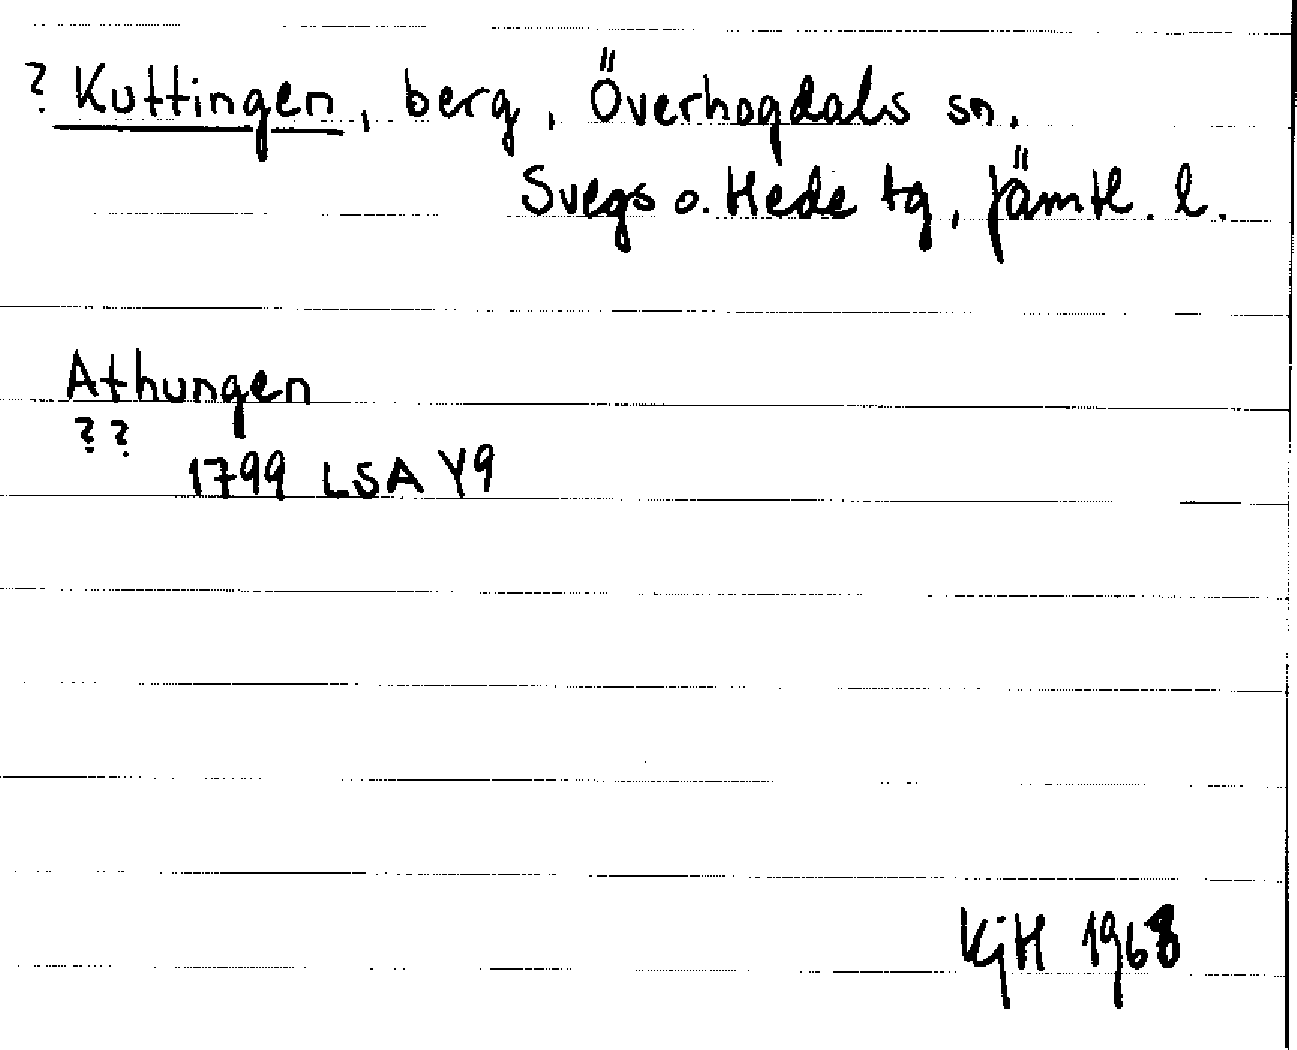 ? Kuttingen, berg, Överhogdals sn.
Svegs o. Hede tg, Jämtl. l.
Athungen
? ?
1799 LSA Y9
KjH 1968